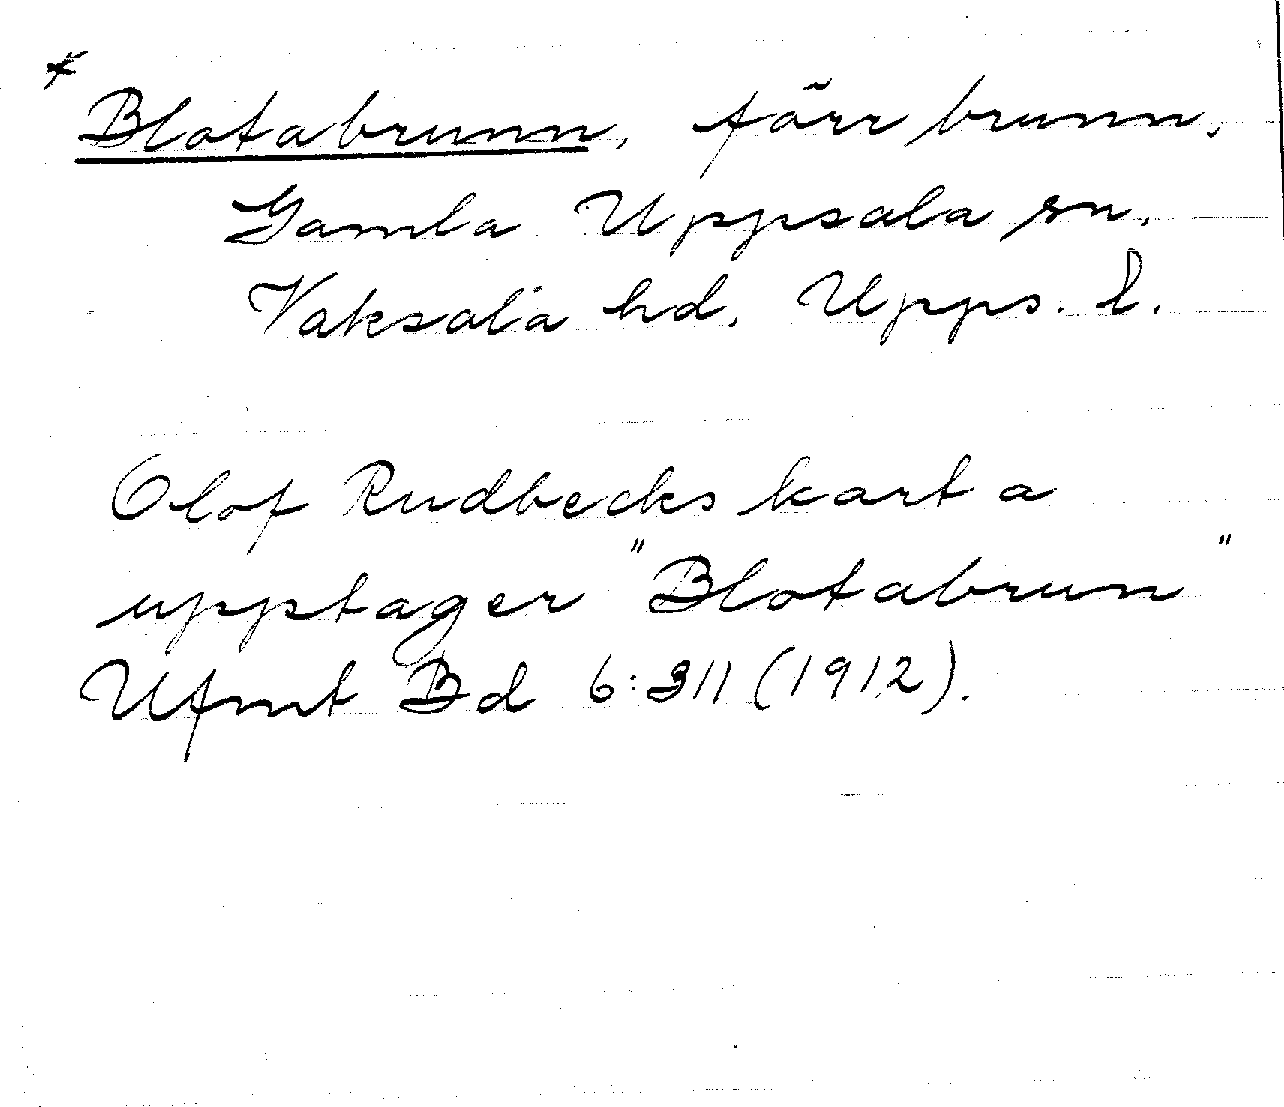 * Blotabrunn, förr brunn,
Gamla Uppsala sn,
Vaksala hd, Upps. l.
Olof Rudbecks karta
upptager "Blotabrun"
Ufmt Bd 6:311 (1912).